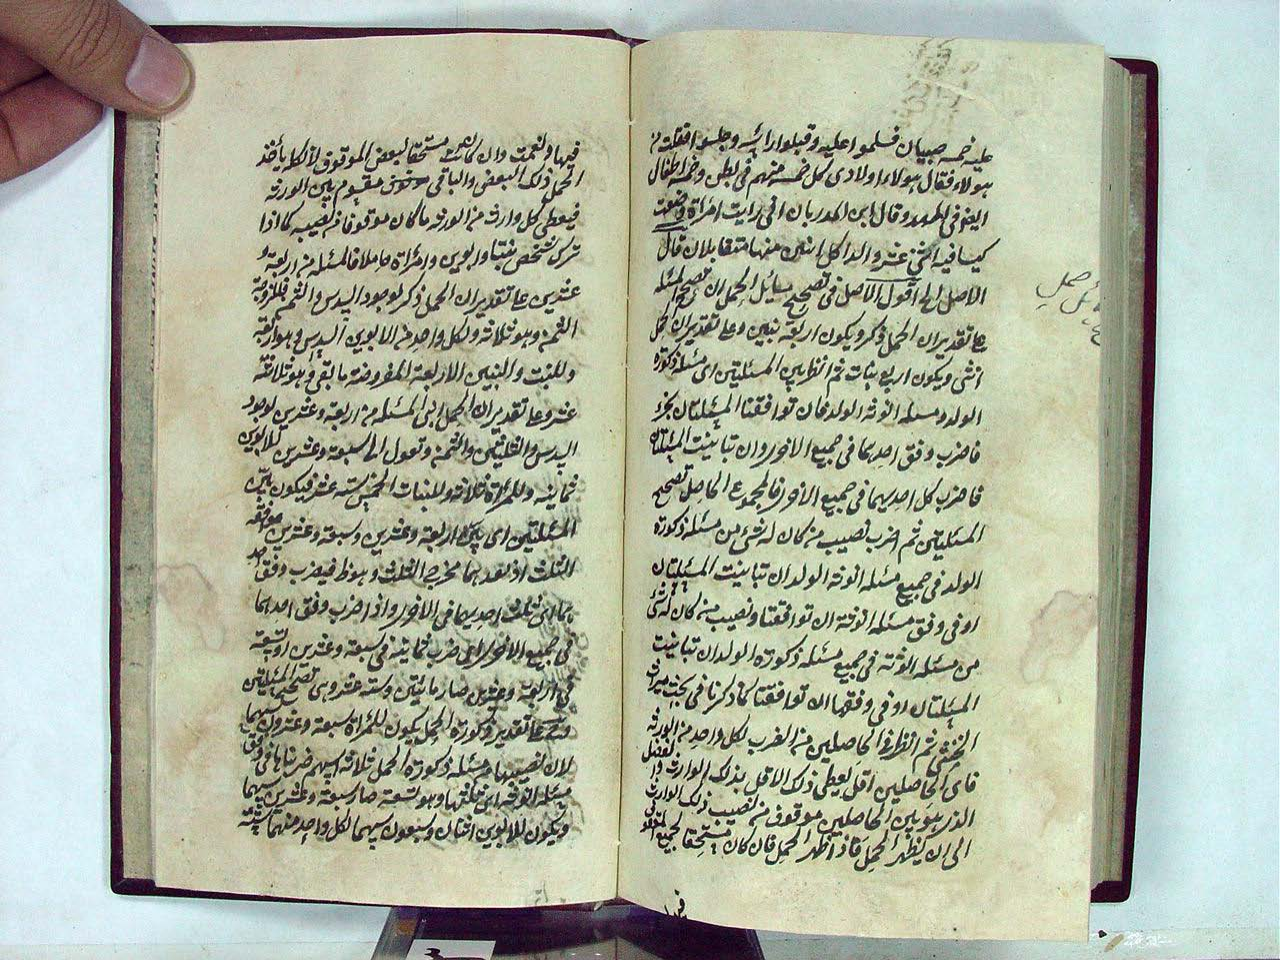 عليه خمسة صبيان فسلموا عليه وقبلوا رأسه وجلسوا فقلت من
هولاء فقال هولاء اولادى كل خمسة منهم فى بطن وخمسة اطفال
ايضا فى المهد وقال ابن المدربان انى رايت امراة وضعت
كيسا فيه اثنى عشر ولدا كل اثنين منها متقابلان قال
الاصل الخ اقول الاصل فى تصحيح مسائل الحمل ان تصحح المسئلة
على تقدير ان الحمل ذكر ويكون اربعة بنين وعلى تقدير ان الحمل
انثى ويكون اربع بنات ثم انظر بين المسئلتين اى مسئلة ذكورة
الولد ومسئلة انوثة الولد فان توافقتا المسئلتان بجزء
فاضرب وفق احديهما فى جميع الاخرى وان تباينت المسئلتان
فاضرب كل احديهما فى جميع الاخرى فالمجموع الحاصل تصحيح
المسئلتين ثم اضرب نصيب من كان له شئ من مسئلة ذكورة
الولد فى جميع مسئلة انوثة الولد ان تباينت المسئلتان
او فى وفق مسئلة انوثته ان توافقتا ونصيب من كان له شئ
من مسئلة انوثته فى جميع مسئلة ذكورة الولد ان تباينت
المسئلتان او فى وفقها ان توافقتا كما ذكرنا فى بحث ميراث
الخنثى ثم انظر فى الحاصلين من الضرب لكل واحد من الورثة
فاى الحاصلين اقل يعطى ذلك الاقل بذلك الوارث والفضل
الذى هو بين الحاصلين موقوف من نصيب ذلك الوارث
الى ان يظهر الحمل فاذا ظهر الحمل فان كان مستحقا لجميع الموقوف
فيها
حمل
فيها ونعمت وان كانت مستحقا لبعض الموقوف لا لكله يأخذ
الحمل ذلك البعض والباقى مقسوم بين الورثة
فيعطى كل وارث من الورثة ما كان موقوفا من نصيبه كما اذا
ترك شخص بنتا وابوين وامرأة حاملا فالمسئلة من اربعة و
عشرين على تقدير ان الحمل ذكر لوجود السدس والثمن فللزوجة
الثمن وهو ثلاثة ولكل واحد من الابوين السدس وهو اربعة
وللبنت والبنين الاربعة المفروضة ما بقى وهو ثلاثة
عشر وعلى تقدير ان الحمل انثى المسئلة من اربعة وعشرين لوجود
السدس والثلثين والثمن وتعول الى سبعة وعشرين للابوين
ثمانية وللمرأة ثلاثة وللبنات الخمس ستة عشر فيكون بين
المسئلتين اى بين اربعة وعشرين وسبعة وعشرين موافقة
الثلث اذ بعد هما مخرج الثلث وهو ظ فيضرب وفق احد
هما اى ثلث احديهما فى الاخرى واذا ضرب وفق احديهما
فى جميع الاخرى اى ضرب ثمانية فى سبعة وعشرين او تسعة
فى اربعة وعشرين صار مائتين وستة عشر وهى تصحيح المسئلتين
على تقدير ذكورة الحمل يكون للمرأة سبعة وعشرون سهما
لان نصيبها من مسئلة ذكورة الحمل ثلاثة اسهم ضربناها فى وفق
مسئلة انوثته اى ثلثها وهو تسعة صار سبعة وعشرين سهما
ويكون للابوين اثنان وسبعون سهما لكل واحد منهما ستة